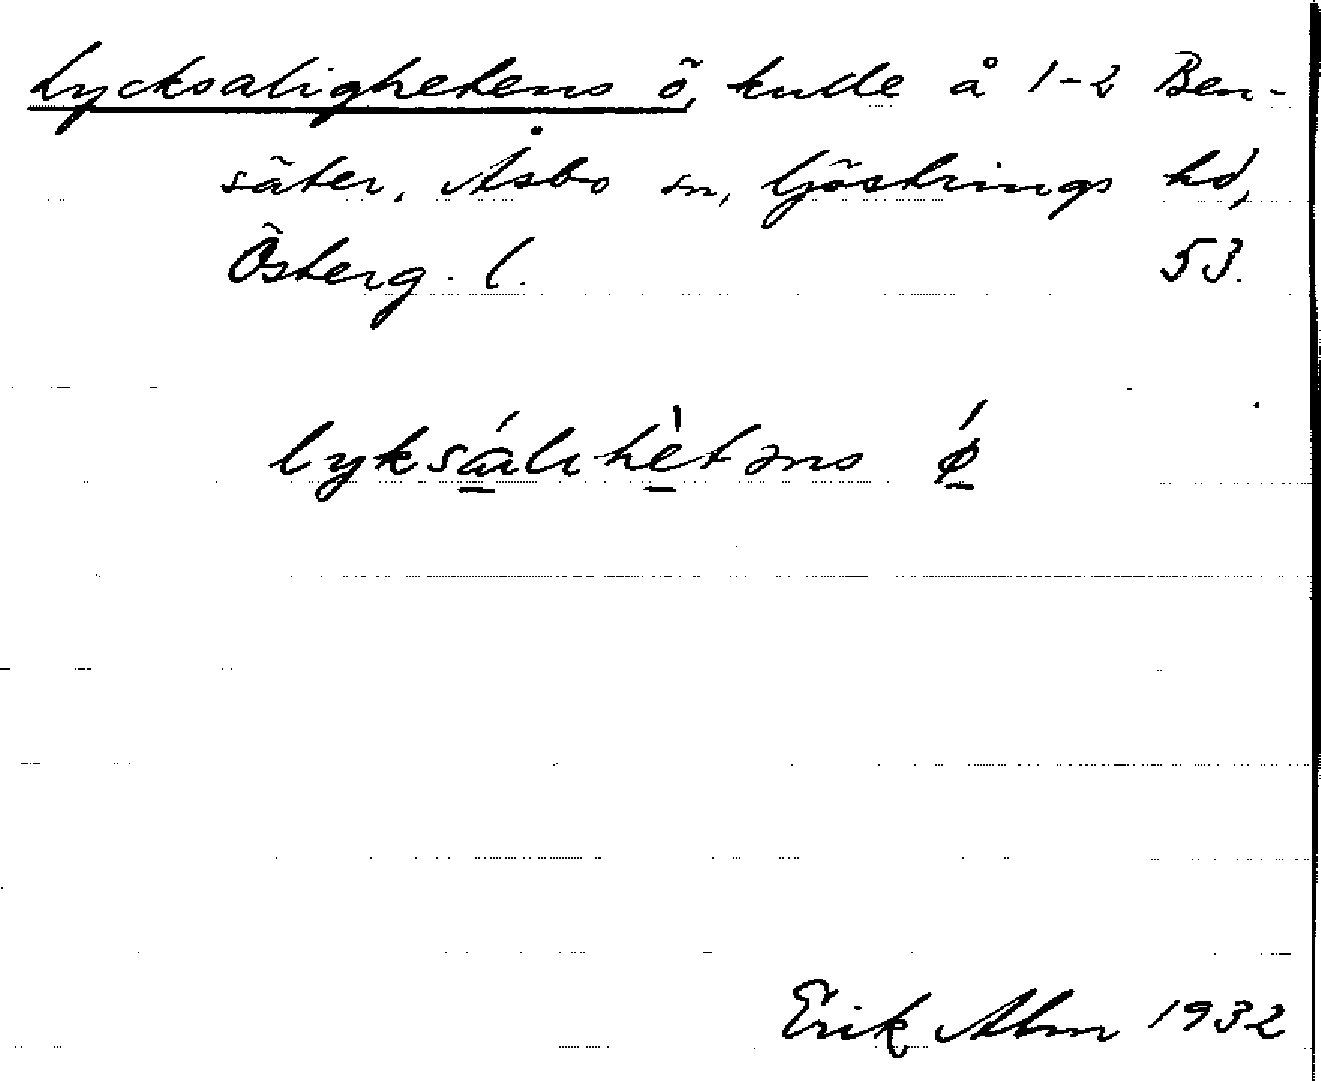 Lycksalighetens ö, kulle å 1-2 Ben-
säter, Åsbo sn, Göstrings hd,
Österg. l. 53.
lyksálihètəns ǿ
Erik Abm 1932